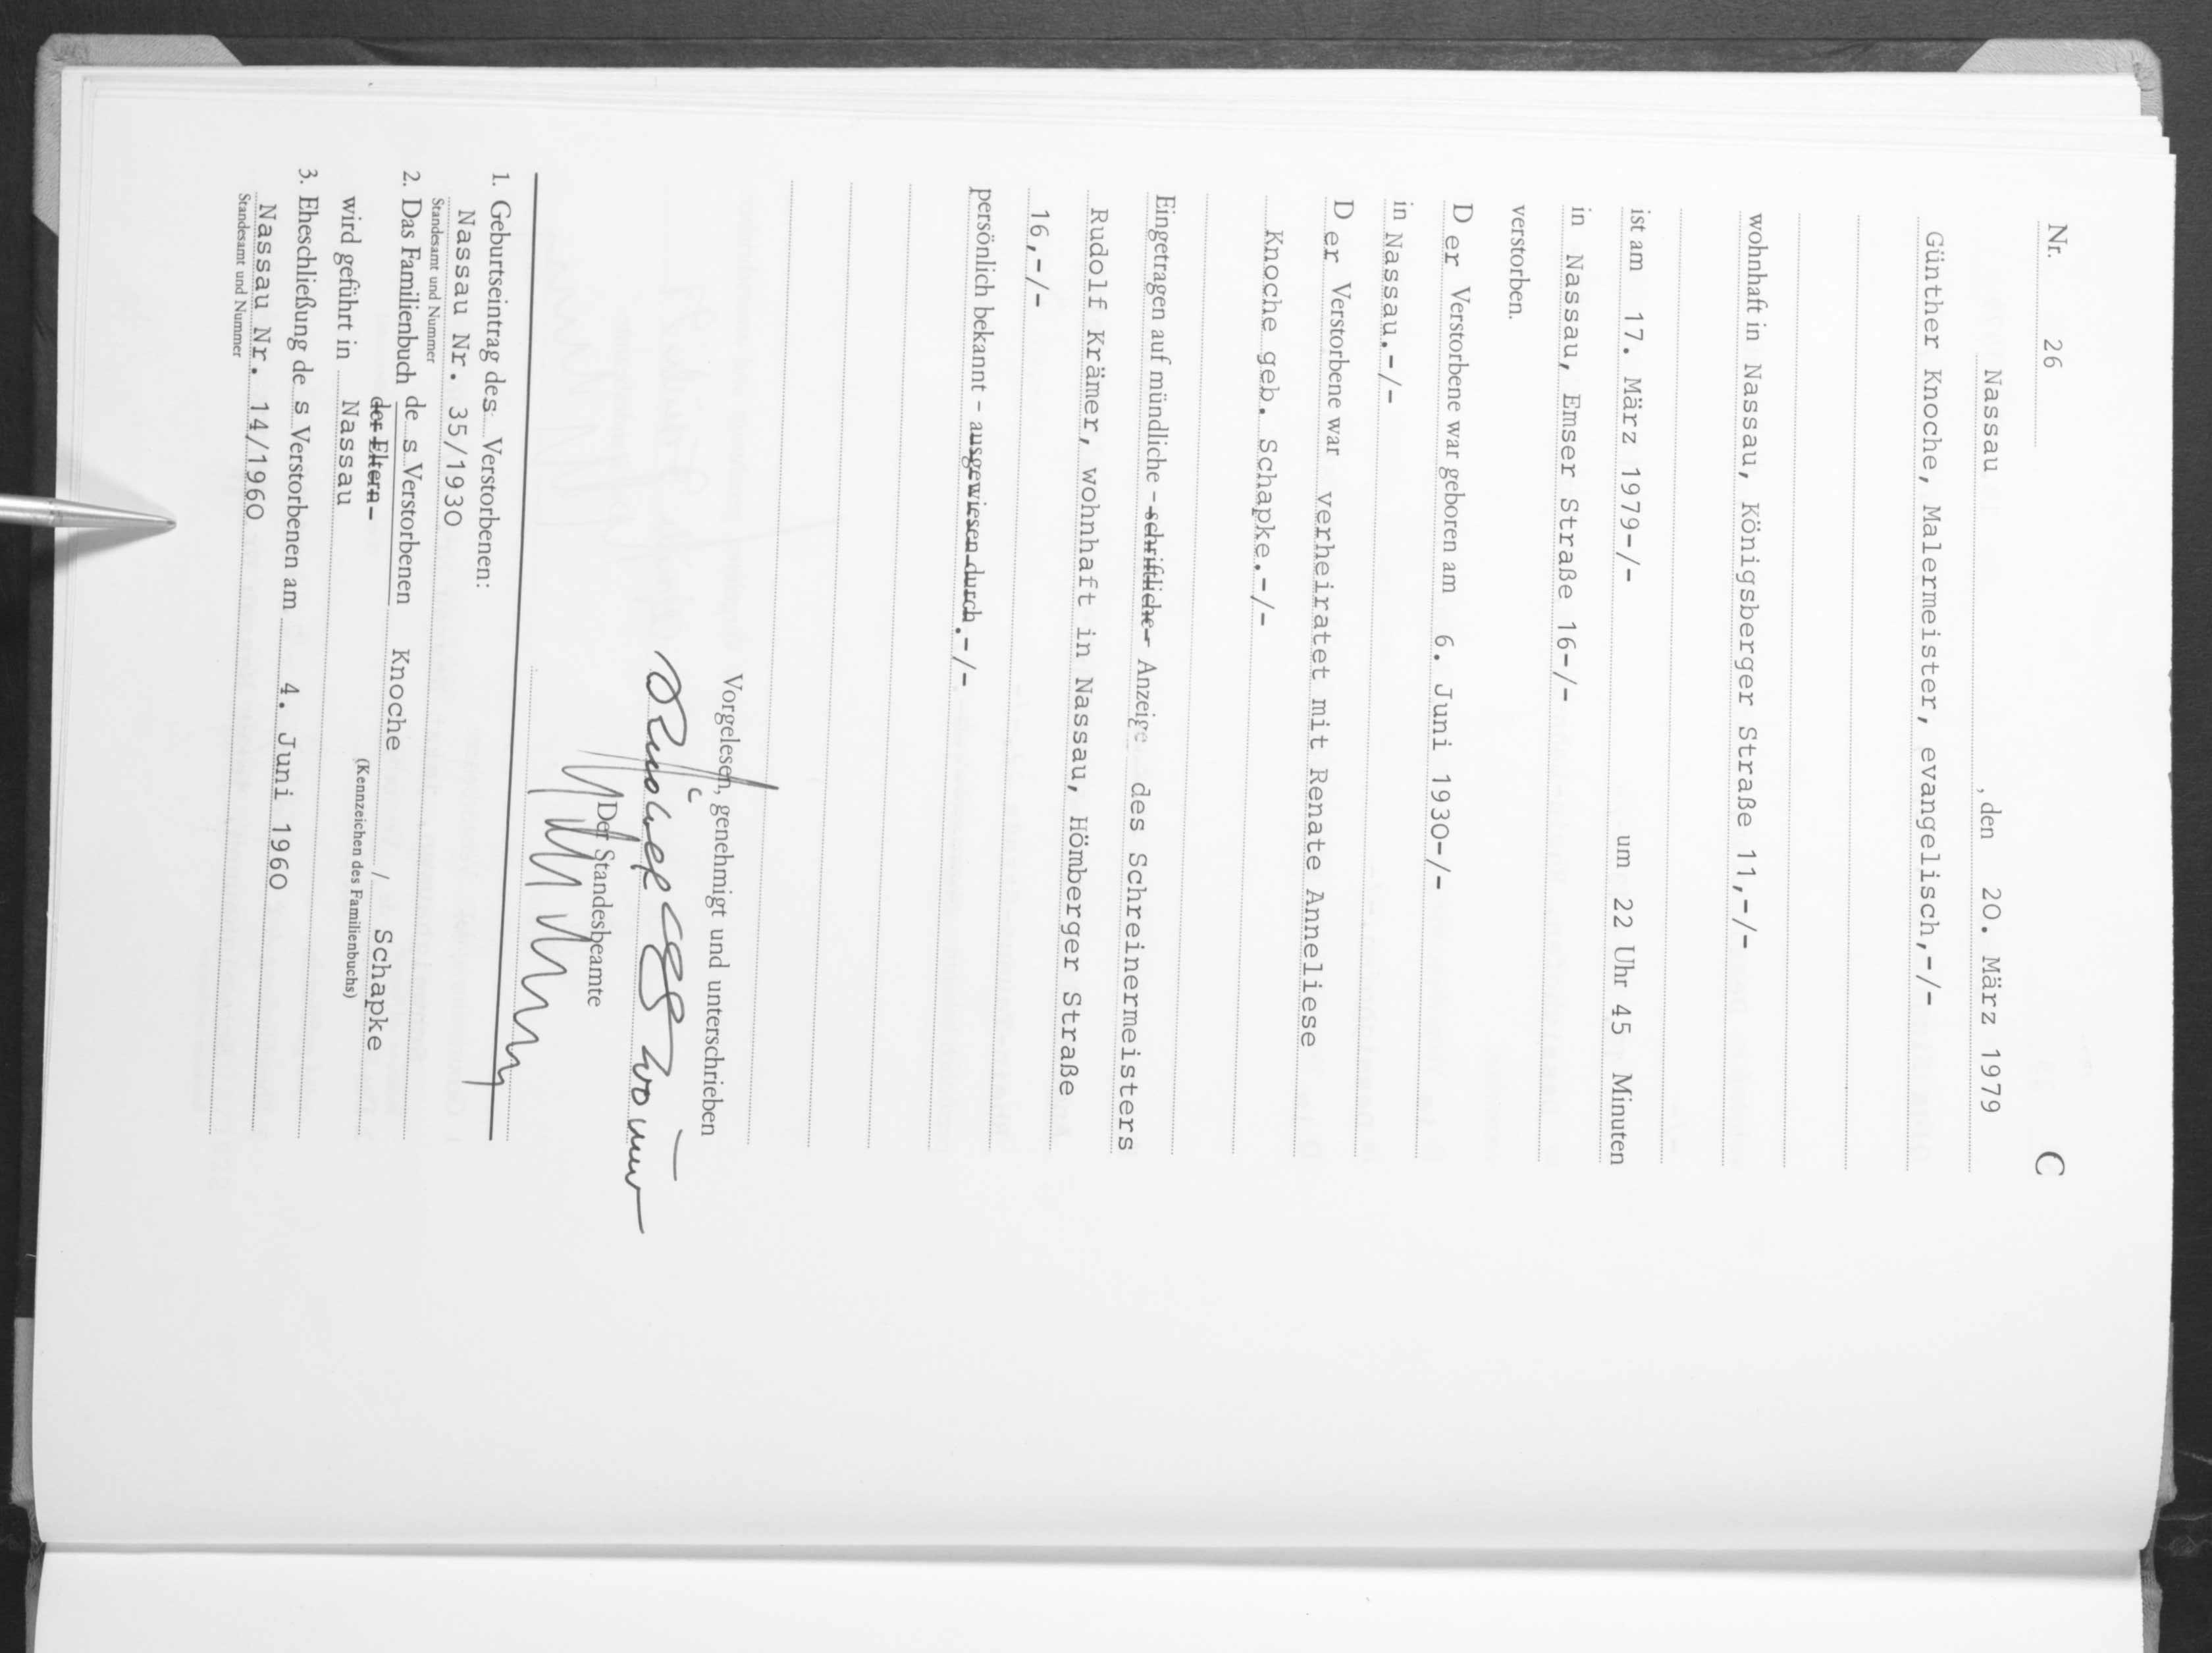 Nr. 26 C
Nassau, den 20. März 1979
Günther Knoche, Malermeister, evangelisch,-/-
wohnhaft in Nassau, Königsberger Straße 11,-/-
ist am 17. März 1979-/- um 22 Uhr 45 Minuten
in Nassau, Emser Straße 16-/-
verstorben.
D er Verstorbene war geboren am 6. Juni 1930-/-
in Nassau.-/-
D er Verstorbene war verheiratet mit Renate Anneliese
Knoche geb. Schapke.-/-
Eingetragen auf mündliche - schriftliche - Anzeige des Schreinermeisters
Rudolf Krämer, wohnhaft in Nassau, Hömberger Straße
16,-/-
persönlich bekannt - ausgewiesen durch.-/-
Vorgelesen, genehmigt und unterschrieben
Rudolf Krämer
Der Standesbeamte
1. Geburtseintrag des Verstorbenen:
Nassau Nr. 35/1930
Standesamt und Nummer
2. Das Familienbuch de s Verstorbenen Knoche / Schapke
der Eltern-
(Kennzeichen des Familienbuchs)
wird geführt in Nassau
3. Eheschließung de s Verstorbenen am 4. Juni 1960
Nassau Nr. 14/1960
Standesamt und Nummer